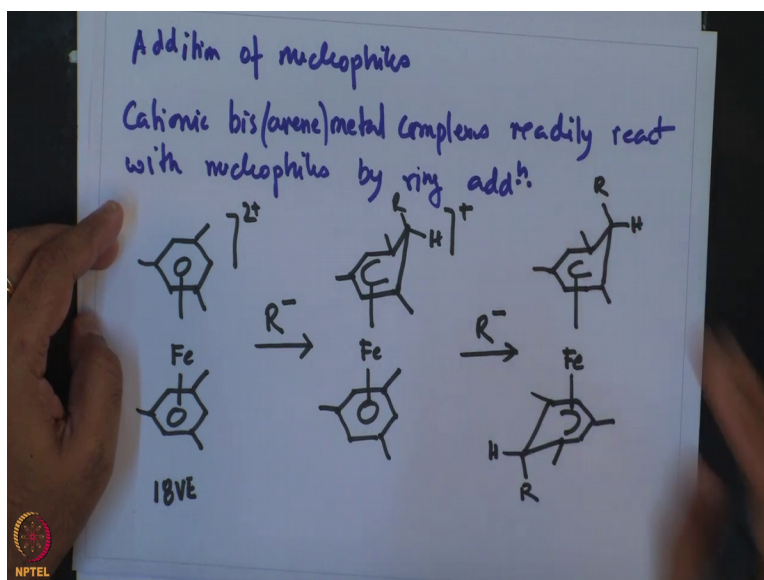 Addition of nucleophiles
Cationic bis(arene)metal complexes readily react
with nucleophiles by ring addⁿ.
]²⁺
R
H
]⁺
R
H
R⁻
R⁻
Fe
Fe
Fe
H
R
18VE
NPTEL